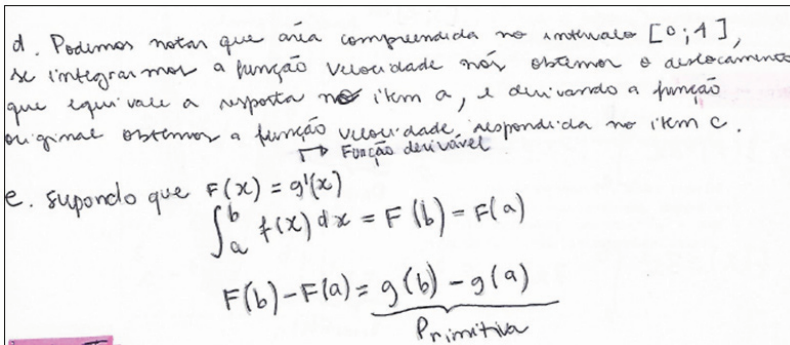 d. Podemos notar que aria compreendida no intervalo [0;1],
se integrarmos a função velocidade nós obtemos o deslocamento
que equivale a resposta no item a, e derivando a função
original obtemos a função velocidade, respondida no item c.
↳ Função derivável
e. supondo que F(x) = g'(x)
∫ₐᵇ f(x) dx = F(b) - F(a)
F(b) - F(a) = g(b) - g(a)
Primitiva